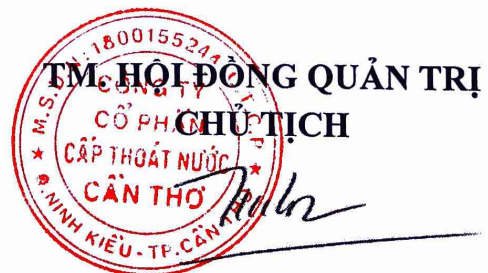 TM. HỘI ĐỒNG QUẢN TRỊ
CHỦ TỊCH
M.S.D.N: 1800155244
CÔNG TY
CỔ PHẦN
CẤP THOÁT NƯỚC
CẦN THƠ
Q. NINH KIỀU - TP. CẦN